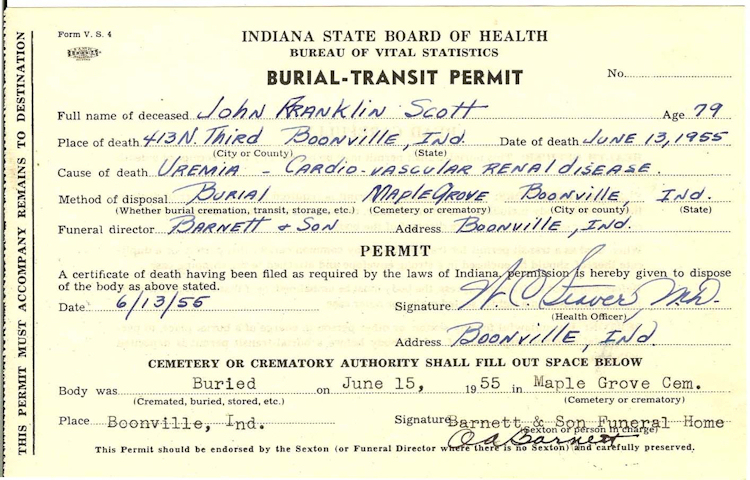 Form V. S. 4
INDIANA STATE BOARD OF HEALTH
BUREAU OF VITAL STATISTICS
BURIAL-TRANSIT PERMIT
No.
Full name of deceased John Franklin Scott Age 79
Place of death 413 N. Third Boonville, Ind. Date of death June 13, 1955
(City or County) (State)
Cause of death Uremia - Cardio-vascular renal disease.
Method of disposal Burial Maple Grove Boonville, Ind.
(Whether burial cremation, transit, storage, etc.) (Cemetery or crematory) (City or county) (State)
Funeral director Barnett & Son Address Boonville, Ind.
PERMIT
A certificate of death having been filed as required by the laws of Indiana, permission is hereby given to dispose
of the body as above stated.
Date 6/13/55 Signature W. C. M.D.
(Health Officer)
Address Boonville, Ind
CEMETERY OR CREMATORY AUTHORITY SHALL FILL OUT SPACE BELOW
Body was Buried on June 15, 1955 in Maple Grove Cem.
(Cremated, buried, stored, etc.) (Cemetery or crematory)
Place Boonville, Ind. Signature Barnett & Son Funeral Home
(Sexton or person in charge)
O A Barnett
This Permit should be endorsed by the Sexton (or Funeral Director where there is no Sexton) and carefully preserved.
THIS PERMIT MUST ACCOMPANY REMAINS TO DESTINATION